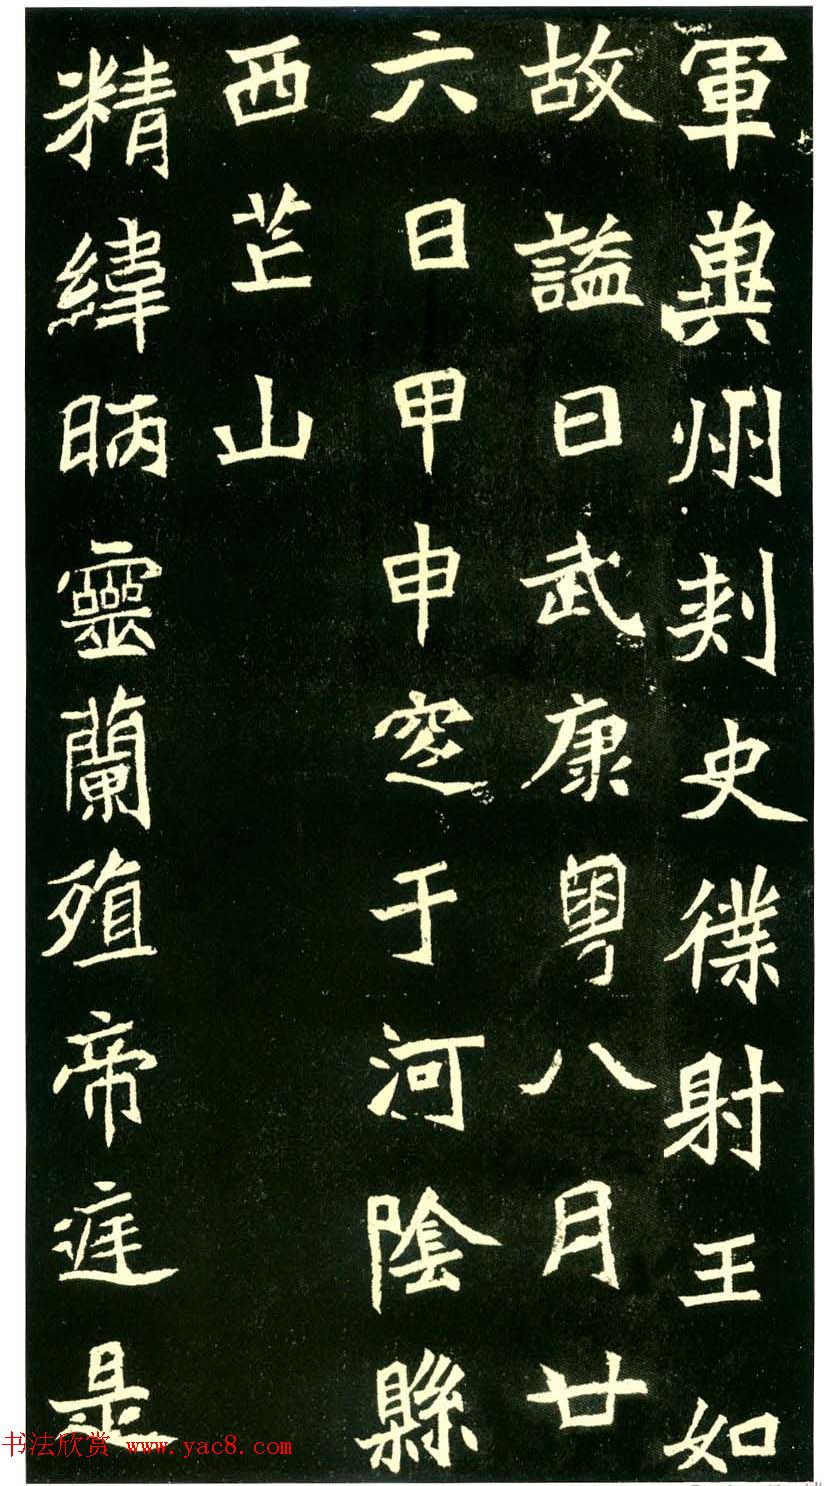 軍冀州刺史僕射王如
故謚曰武康粵八月廿
六日甲申窆于河陰縣
西芒山
精緯昞靈蘭殖帝庭是
书法欣赏 www.yac8.com